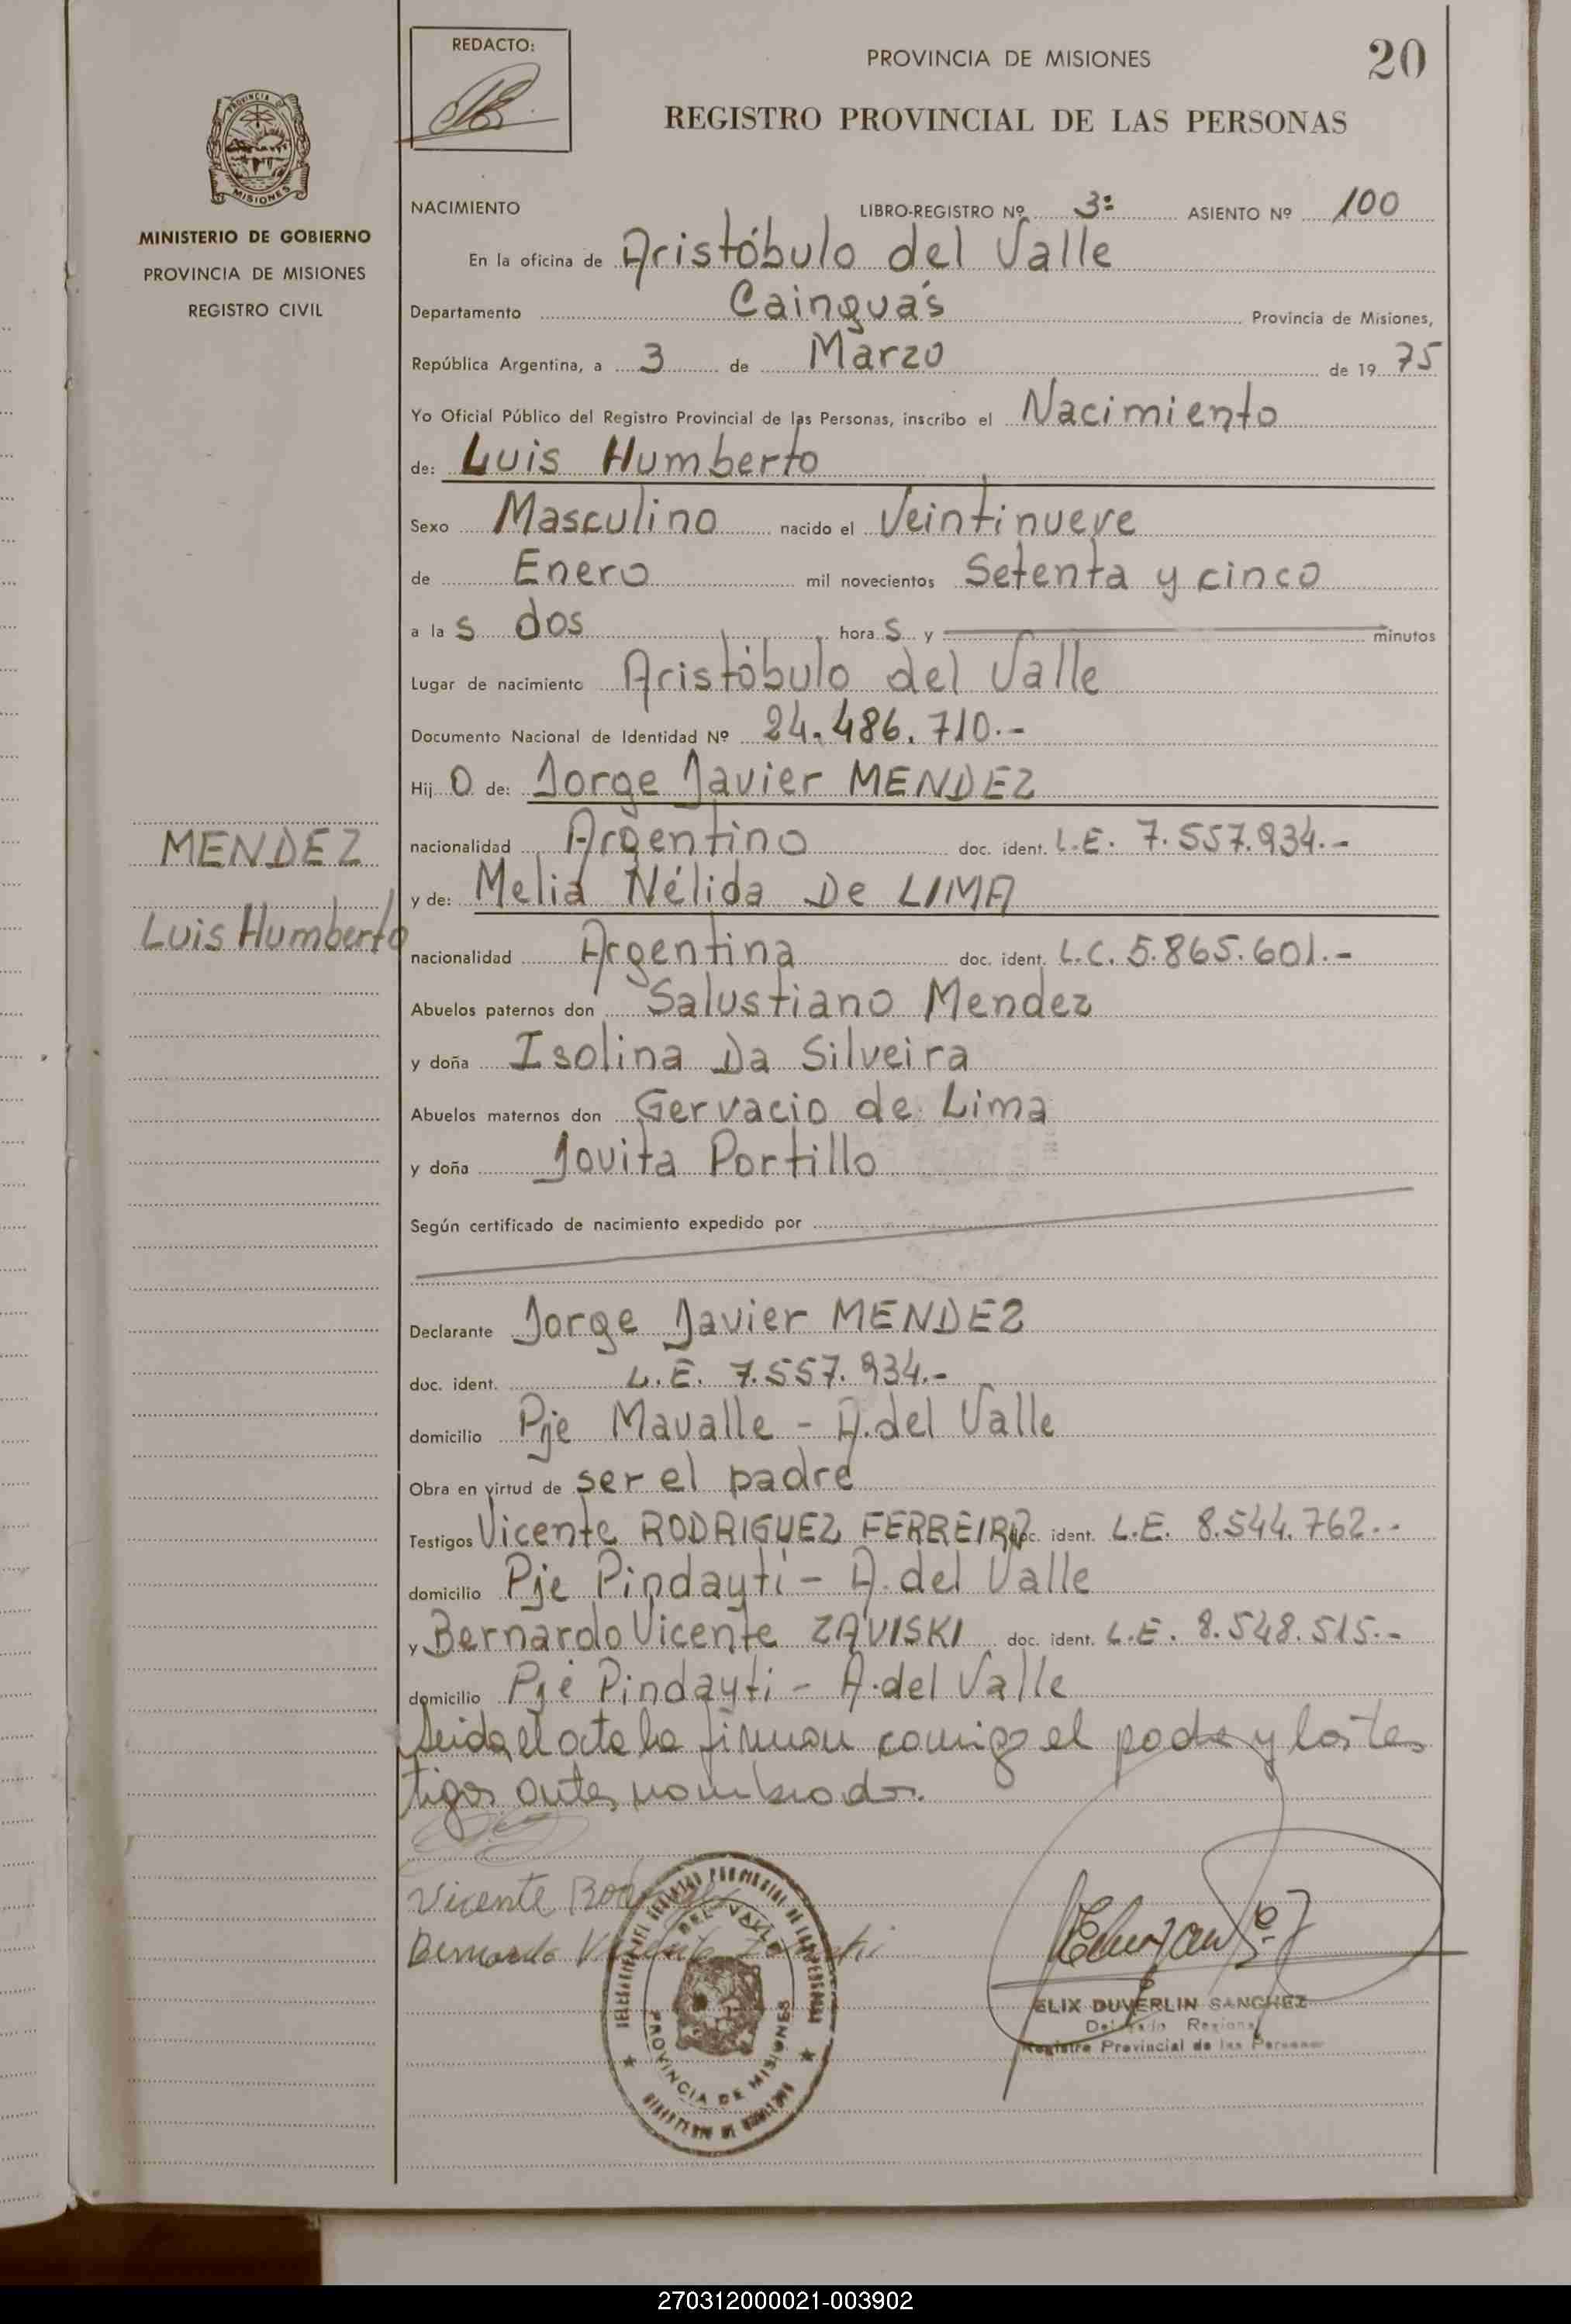 REDACTO:
PROVINCIA DE MISIONES
20
REGISTRO PROVINCIAL DE LAS PERSONAS
PROVINCIA
MISIONES
MINISTERIO DE GOBIERNO
PROVINCIA DE MISIONES
REGISTRO CIVIL
NACIMIENTO LIBRO-REGISTRO Nº 3º ASIENTO Nº 100
En la oficina de Aristóbulo del Valle
Departamento Cainguás Provincia de Misiones,
República Argentina, a 3 de Marzo de 19 75
Yo Oficial Público del Registro Provincial de las Personas, inscribo el Nacimiento
de: Luis Humberto
Sexo Masculino nacido el Veintinueve
de Enero mil novecientos Setenta y cinco
a la s dos hora s y minutos
Lugar de nacimiento Aristóbulo del Valle
Documento Nacional de Identidad Nº 24.486.710.-
Hij o de: Jorge Javier MENDEZ
MENDEZ
nacionalidad Argentino doc. ident. L.E. 7.557.934.-
y de: Melia Nélida De LIMA
Luis Humberto
nacionalidad Argentina doc. ident. L.C. 5.865.601.-
Abuelos paternos don Salustiano Mendez
y doña Isolina Da Silveira
Abuelos maternos don Gervacio de Lima
y doña Jovita Portillo
Según certificado de nacimiento expedido por
Declarante Jorge Javier MENDEZ
doc. ident. L.E. 7.557.934.-
domicilio Pje Mavalle - A.del Valle
Obra en virtud de ser el padre
Testigos Vicente RODRIGUEZ FERREIRA doc. ident. L.E. 8.544.762.-
domicilio Pje Pindayti - A.del Valle
y Bernardo Vicente ZAVISKI doc. ident. L.E. 8.548.515.-
domicilio Pje Pindayti - A.del Valle
Leida el acta la firman conmigo el padre y los tes
tigos antes nombrados.
Vicente
Bernardo
DEL VALLE
PROVINCIA DE MISIONES
ELIX DUVERLIN SANCHEZ
Delegado Regional
Registro Provincial de las Personas
270312000021-003902